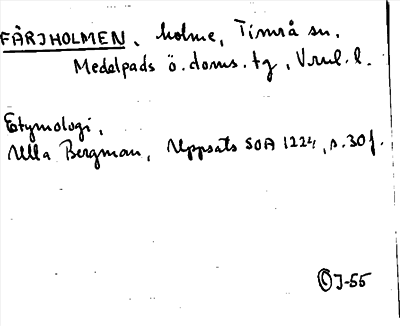 FÄRJHOLMEN, holme, Timrå sn.
Medelpads ö. doms. tg, Vnul. l.
Etymologi,
Ulla Bergman, Uppsats SOA 1224, s. 30 f.
J-55